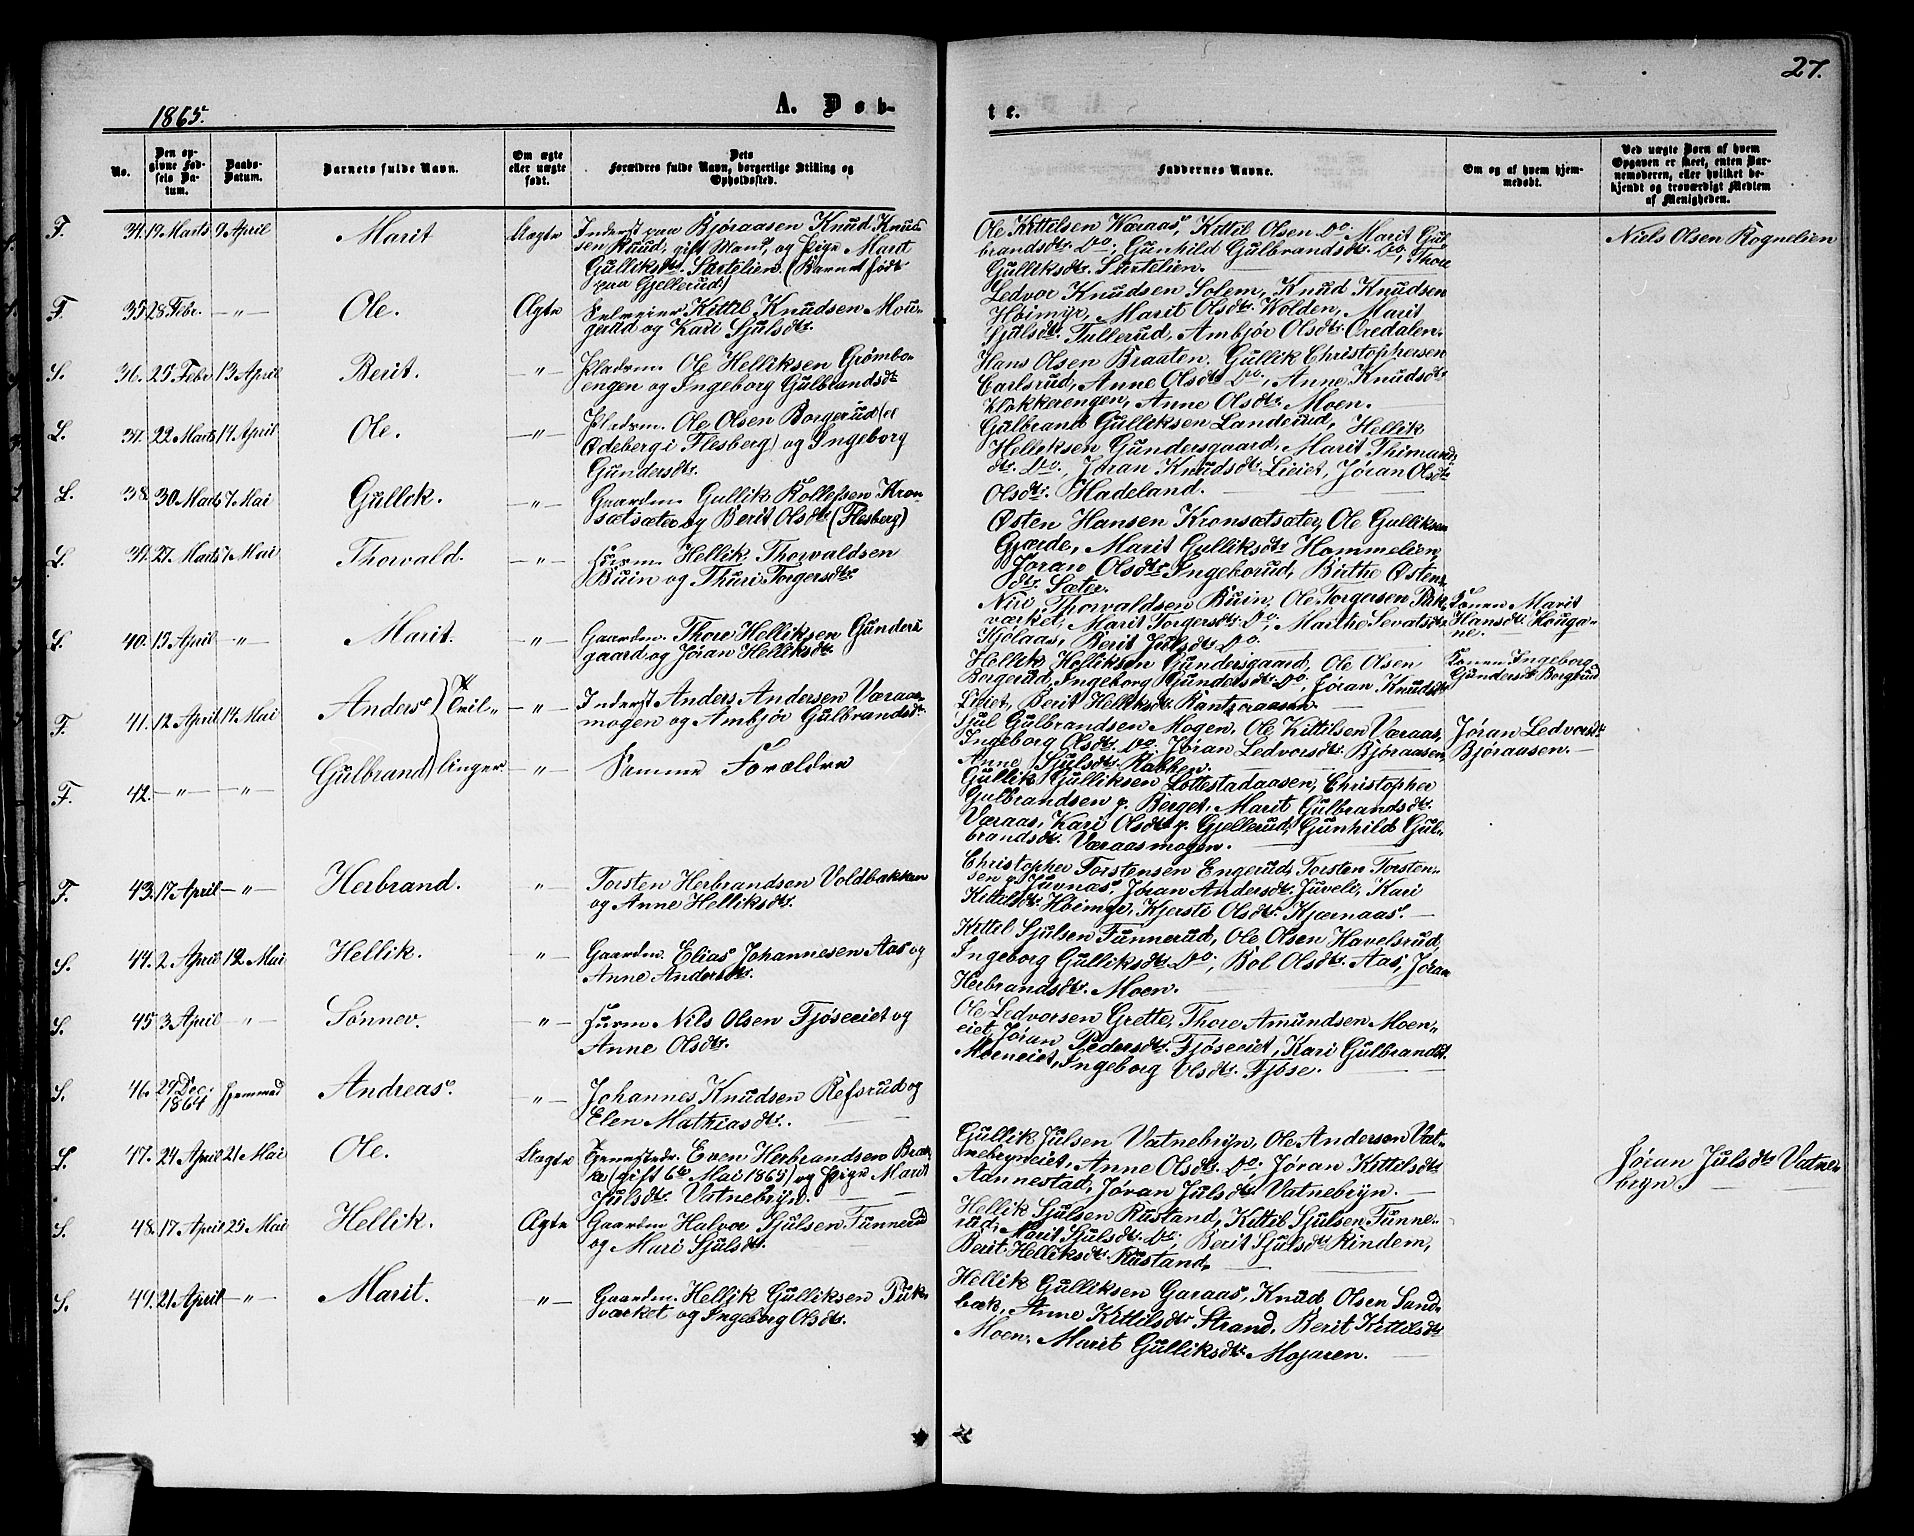 27.
1865.
A. Døb-
te.
No.
Den op-
givne Fød-
sels Da-
tum.
Daabs-
Datum.
Barnets fulde Navn.
Om ægte
eller uægte
født.
Dets
Forældres fulde Navn, borgerlige Stilling og
Opholdssted.
Faddernes Navne.
Om og af hvem hjem-
medøbt.
Ved uægte Børn af hvem
Opgaven er skeet, enten Bar-
nemoderen, eller hvilket be-
kjendt og troværdigt Medlem
af Menigheden.
F. 34. 19 Marts 9 April Marit Uægte
Inderst paa Bjøraasen Knud Knud-
sen Ruud, gift Mand, og Pige Marit
Gulliksdtr. Sartelien. (Barnet født
paa Gjellerud)
Ole Kittilsen Væraas, Kittil Olsen Do. Marit Gul-
brandsdtr. Do, Gunhild Gulbrandsdtr. Do, Thore
Gulliksdtr. Sartelien.
Niels Olsen Rognelien
F. 35. 28 Febr. —"— Ole. Ægte
Selveier Kittil Knudsen Mou-
gerud og Kari Sjulsdtr.
Ledvor Knudsen Solem, Knud Knudsen
Høimyr, Marit Olsdtr. Kolden, Marit
Sjulsdtr. Tullerud, Ambjør Olsdtr. Ovedalen.
S. 36. 25 Febr 13 April Berit. —"—
Pladsm. Ole Helliksen Grømbo-
engen og Ingeborg Gulbrandsdtr
Hans Olsen Braaten, Gullik Christophersen
Carlsrud, Anne Olsdtr Do, Anne Knudsdtr
Klokkerengen, Anne Olsdtr. Moen.
L. 37. 22 Marts 17 April Ole. —"—
Pladsm. Ole Olsen Borgerud (el
Ødeberg i Flesberg) og Ingeborg
Gundersdtr.
Gulbrand Gulliksen Landerud, Hellik
Helliksen Gundersgaard, Marit Thimunds
dtr. Do, Jøran Knudsdtr. Lieiet, Jøran Olsdtr
Olsdtr. Hadeland.
L. 38. 30 Marts 7 Mai Gullik. —"—
Gaardm. Gullik Rollefsen Kron-
sætsæter og Berit Olsdtr (Flesberg)
Østen Hansen Kronsætsæter, Ole Gulliksen
Gjærde, Marit Gulliksdtr. Hommelien,
Jøran Olsdtr Ingeborud, Birthe Østens
dtr. Sæter.
L. 39. 27 Marts 7 Mai Thorvald. —"—
Huusm. Hellik Thorvaldsen
Buin og Thuri Torgersdtr.
Niri Thorvaldsen Buin, Ole Torgersen Puk-
værket, Marit Torgersdtr. Do, Marthe Sevatsdtr
Kjølaas, Berit Julsdtr Do.
Konen Marit
Hansdtr Houga-
ne.
L. 40. 15 April —"— Marit. —"—
Gaardm. Thore Helliksen Gunders
gaard og Jøran Helliksdtr.
Hellik Helliksen Gundersgaard, Ole Olsen
Borgerud, Ingeborg Gundersdtr. Do, Jøran Knudsdtr
Lieiet, Berit Helliksdtr. Rantzeraasen.
Konen Ingeborg
Gundersdtr Borgerud
F. 41. 12 April 14 Mai Anders Tvil- —"—
Inderst Anders Andersen Væraas-
mogen og Ambjør Gulbrandsdtr
Sjul Gulbrandsen Mogen, Ole Kittilsen Væraas,
Ingeborg Olsdtr. Do. Jøran Ledvorsdtr. Bjøraasen
Anne Sjulsdtr. Rabben.
Jøran Ledvorsdtr
Bjøraasen.
F. 42. —"— —"— Gulbrand linger —"—
Samme Forældre
Gullik Gulliksen Lottestadaasen, Christopher
Gulbrandsen p. Berget, Marit Gulbrandsdtr.
Væraas, Kari Olsdtr p. Gjellerud, Gunhild Gul-
brandsdtr. Væraasmogen.
F. 43. 17 April —"— Herbrand. "
Torsten Herbrandsen Voldbakken
og Anne Helliksdtr.
Christopher Torstensen Engerud, Torsten Torsten-
sen p. Juvnæs, Jøran Andersdtr. Juveli, Kari
Kittilsdtr Høimyr, Kjersti Olsdtr. Kjærnaas.
S. 44. 2 April 12 Mai Hellik. "
Gaardm. Elias Johannesen Aas og
Anne Andersdtr.
Kittil Sjulsen Tunnerud, Ole Olsen Havelsrud,
Ingeborg Gulliksdtr. Do, Bol Olsdtr. Aas, Jøran
Herbrandsdtr. Moen.
S. 45 3 April —"— Sønnev. —"—
Huusm Nils Olsen Fjøseeiet og
Anne Olsdtr.
Ole Ledvorsen Grette, Thore Amundsen Moen-
eiet, Jøran Pedersdtr. Fjøseeiet, Kari Gulbrandsdtr.
Moeneiet, Ingeborg Olsdtr. Fjøse.
S. 46. 29 Dec. 1864 Hjemmed Andreas. —"—
Johannes Knudsen Refsrud og
Elen Mathiasdtr.
L. 47. 24 April 21 Mai Ole. Uægte
Tjenestedr. Even Herbrandsen Brat-
ta (gift 6te Mai 1865) og Pige Marit
Julsdtr. Vatnebryn.
Gullik Julsen Vatnebryn, Ole Andersen Vat-
nebryneiet, Anne Olsdtr. Do. Jøran Kittilsdtr
Aannestad, Jøran Julsdtr. Vatnebryn.
Jøran Julsdtr Vatne-
bryn.
S. 48. 17 April 25 Mai Hellik. Ægte
Gaardm Halvor Sjulsen Tunnerud
og Mari Sjulsdtr.
Hellik Sjulsen Rustand, Kittil Sjulsen Tunne-
rud, Marit Sjulsdtr. Do, Berit Sjulsdtr Rindem,
Berit Helliksdtr. Rustand.
S. 49. 21 April —"— Marit. —"—
Gaardm. Hellik Gulliksen Puk-
værket og Ingeborg Olsdtr.
Hellik Gulliksen Garaas, Knud Olsen Sand-
bæk, Anne Kittilsdtr Strand, Berit Kittilsdtr
Moen, Marit Gulliksdtr. Mojaren.